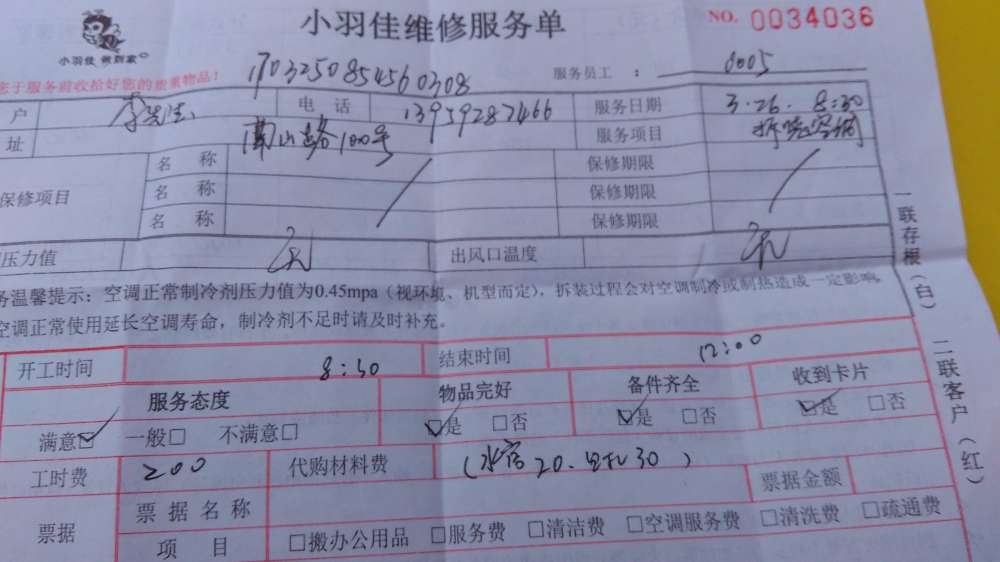 小羽佳维修服务单
NO. 0034036
小羽佳 做到家
您于服务前收拾好您的贵重物品！
1703250854560308
服务员工 ： 0005
户 李先生 电 话 13959282466 服务日期 3.26. 8:30
址 南山路100号 服务项目 拆装空调
保修项目
名 称 保修期限
名 称 保修期限
名 称 保修期限
压力值 出风口温度
务温馨提示：空调正常制冷剂压力值为0.45mpa（视环境、机型而定），拆装过程会对空调制冷或制热造成一定影响，
空调正常使用延长空调寿命，制冷剂不足时请及时补充。
一联存根（白） 二联客户（红）
开工时间 8:30 结束时间 12:00
服务态度 物品完好 备件齐全 收到卡片
满意☑ 一般□ 不满意□ ☑是 □否 ☑是 □否 ☑是 □否
工时费 200 代购材料费 （水管20. 空孔30） 票据金额
票据
票据名称
项 目 □搬办公用品 □服务费 □清洁费 □空调服务费 □清洗费 □疏通费